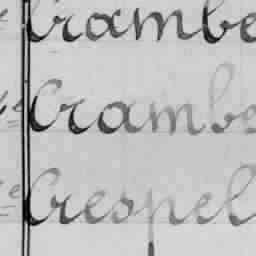 Crambe
Crambe
Crespel